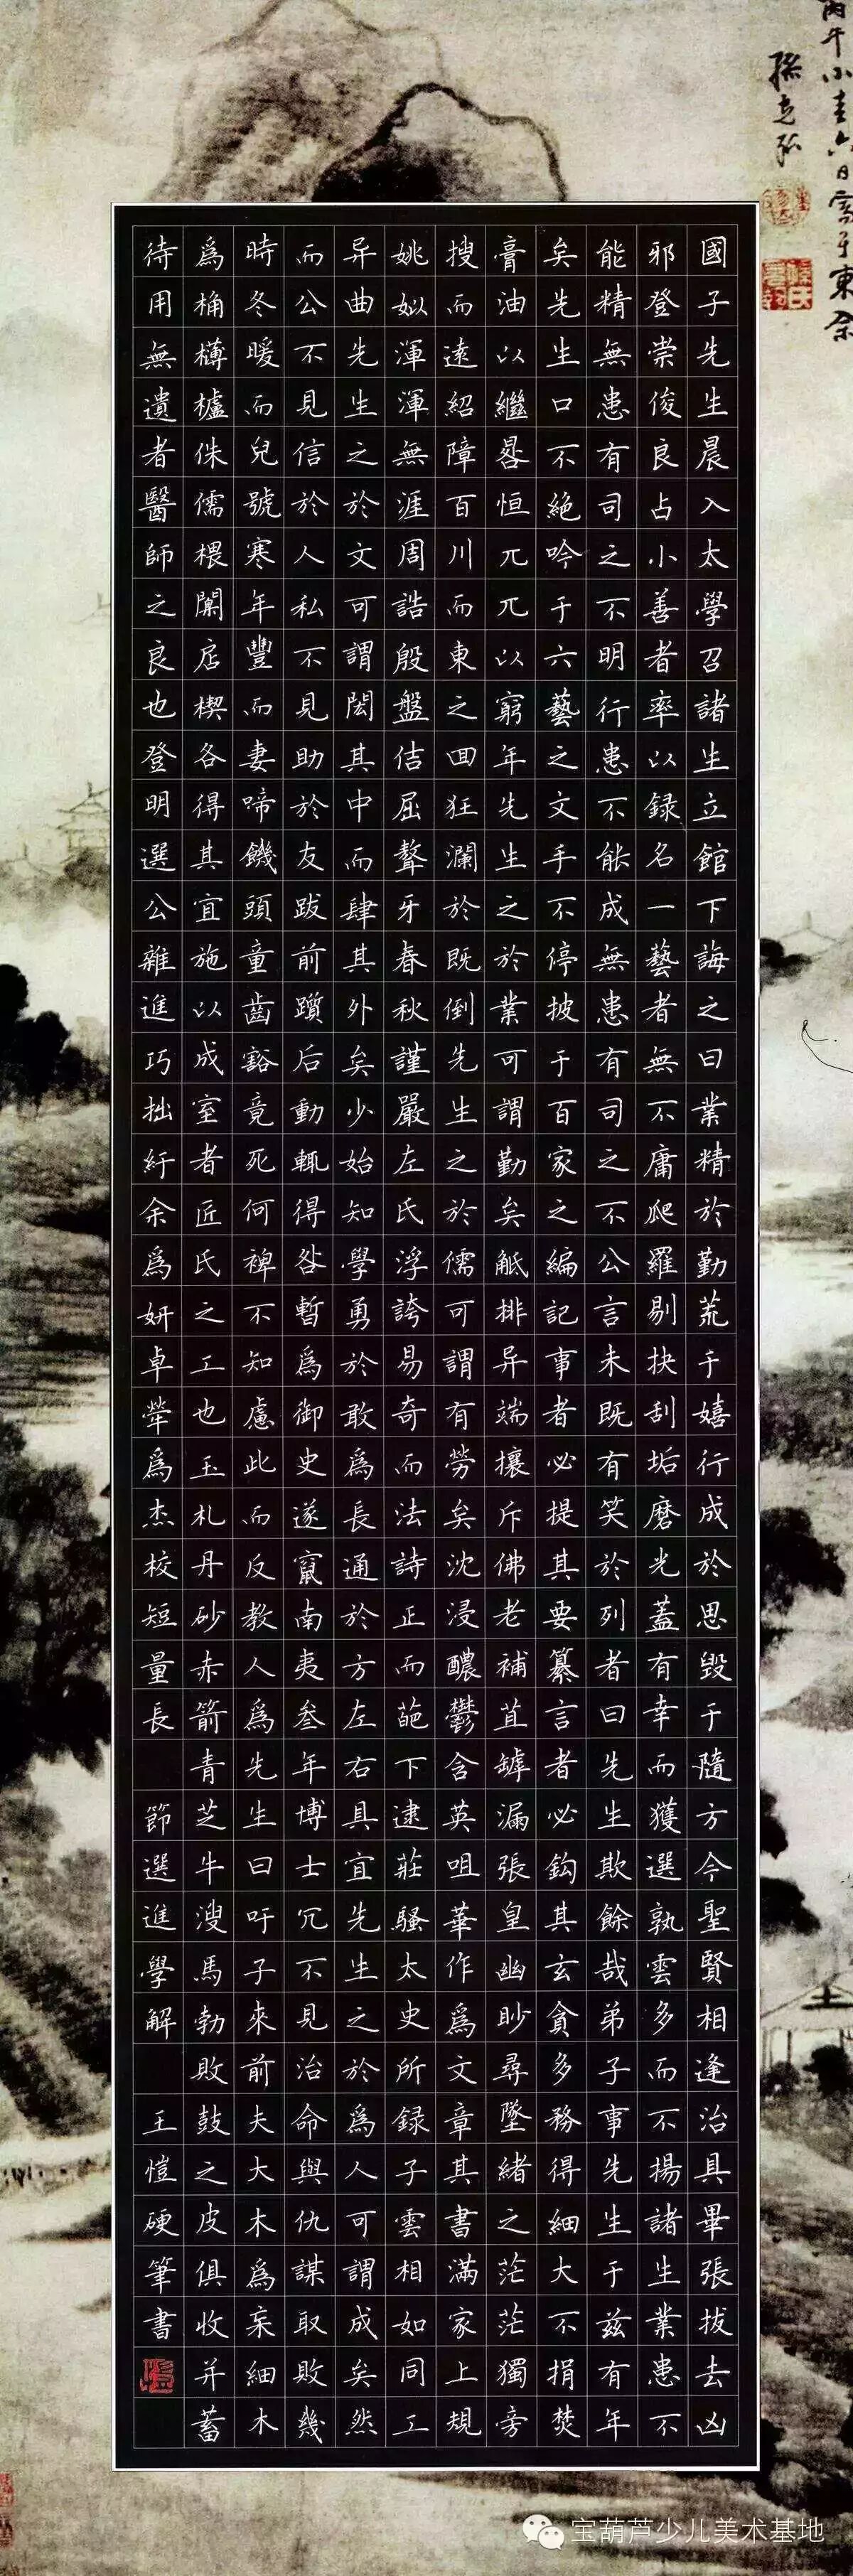 丙午小春六日寫于東佘
孫克弘
國子先生晨入太學召諸生立館下誨之曰業精於勤荒于嬉行成於思毀于隨方今聖賢相逢治具畢張拔去凶
邪登崇俊良占小善者率以録名一藝者無不庸爬羅剔抉刮垢磨光蓋有幸而獲選孰雲多而不揚諸生業患不
能精無患有司之不明行患不能成無患有司之不公言未既有笑於列者曰先生欺餘哉弟子事先生于兹有年
矣先生口不絶吟于六藝之文手不停披于百家之編記事者必提其要纂言者必鈎其玄貪多務得細大不捐焚
膏油以繼晷恒兀兀以窮年先生之於業可謂勤矣觝排异端攘斥佛老補苴罅漏張皇幽眇尋墜緒之茫茫獨旁
搜而遠紹障百川而東之回狂瀾於既倒先生之於儒可謂有勞矣沈浸醲鬱含英咀華作爲文章其書滿家上規
姚姒渾渾無涯周誥殷盤佶屈聱牙春秋謹嚴左氏浮誇易奇而法詩正而葩下逮莊騷太史所録子雲相如同工
异曲先生之於文可謂閎其中而肆其外矣少始知學勇於敢爲長通於方左右具宜先生之於爲人可謂成矣然
而公不見信於人私不見助於友跋前躓后動輒得咎暫爲御史遂竄南夷叁年博士冗不見治命與仇謀取敗幾
時冬暖而兒號寒年豐而妻啼饑頭童齒豁竟死何裨不知慮此而反教人爲先生曰吁子來前夫大木爲杗細木
爲桷欂櫨侏儒椳闑扂楔各得其宜施以成室者匠氏之工也玉札丹砂赤箭青芝牛溲馬勃敗鼓之皮俱收并蓄
待用無遺者醫師之良也登明選公雜進巧拙紆余爲妍卓犖爲杰校短量長 節選進學解 王愷硬筆書
宝葫芦少儿美术基地